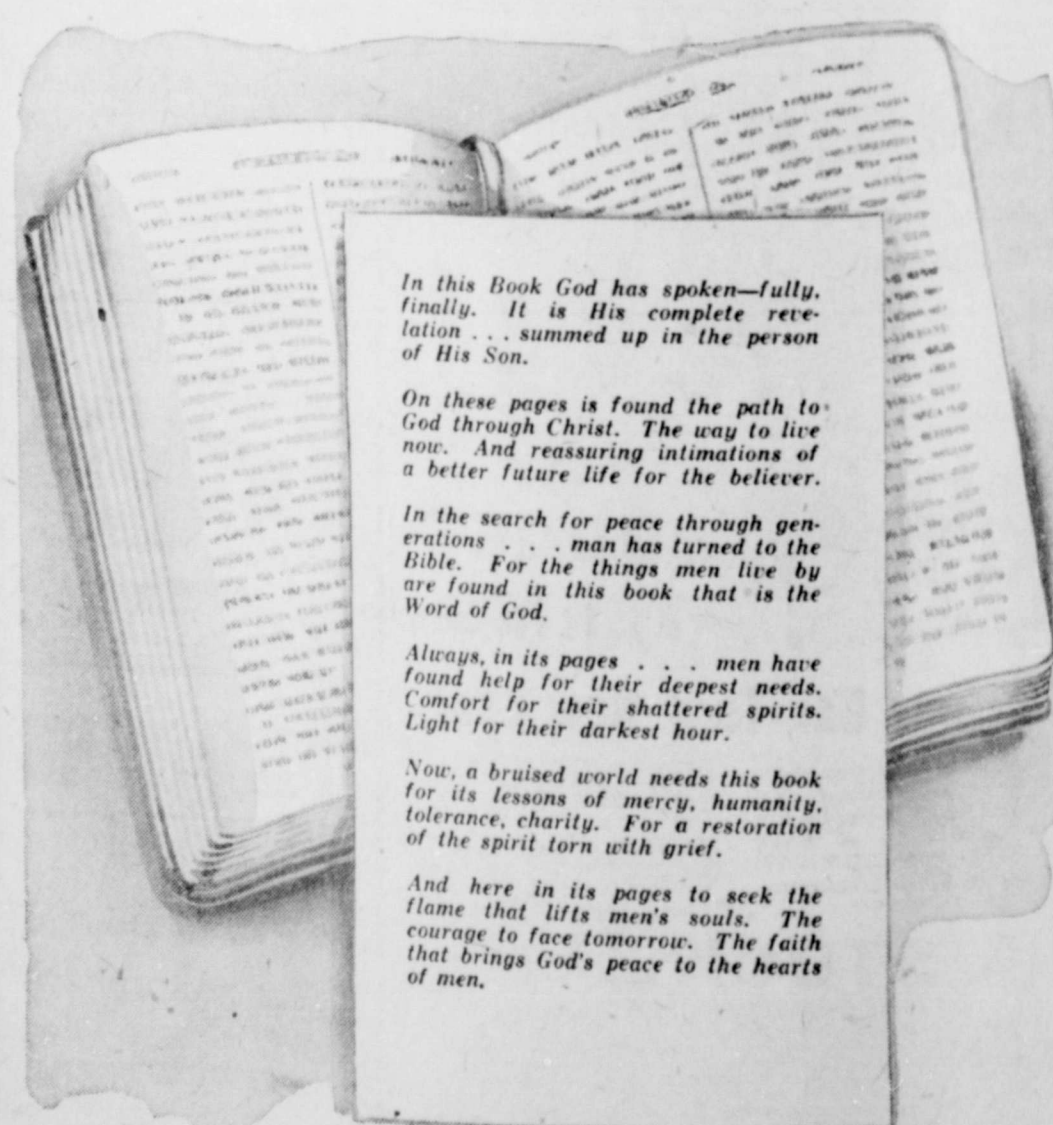 In this Book God has spoken—fully,
finally. It is His complete reve-
lation . . . summed up in the person
of His Son.
On these pages is found the path to
God through Christ. The way to live
now. And reassuring intimations of
a better future life for the believer.
In the search for peace through gen-
erations . . . man has turned to the
Bible. For the things men live by
are found in this book that is the
Word of God.
Always, in its pages . . . men have
found help for their deepest needs.
Comfort for their shattered spirits.
Light for their darkest hour.
Now, a bruised world needs this book
for its lessons of mercy, humanity,
tolerance, charity. For a restoration
of the spirit torn with grief.
And here in its pages to seek the
flame that lifts men's souls. The
courage to face tomorrow. The faith
that brings God's peace to the hearts
of men.